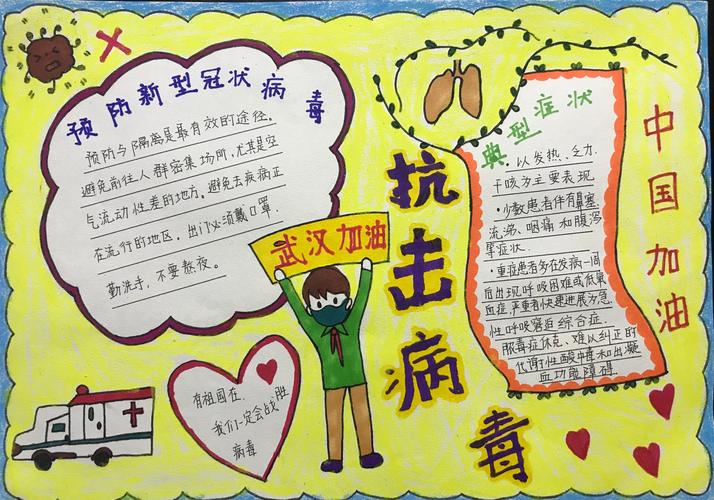 预防新型冠状病毒
预防与隔离是最有效的途径。
避免前往人群密集场所,尤其是空
气流动性差的地方。避免去疾病正
在流行的地区,出门必须戴口罩,
勤洗手,不要熬夜。
武汉加油
有祖国在,
我们一定会战胜
病毒
抗击病毒
典型症状
·以发热、乏力、
干咳为主要表现
·少数患者伴有鼻塞,
流涕、咽痛和腹泻
等症状.
·重症患者多在发病一周
后出现呼吸困难或低氧
血症,严重者快速进展为急
性呼吸窘迫综合症.
脓毒症休克、难以纠正的
代谢性酸中毒和出凝
血功能障碍
中国加油